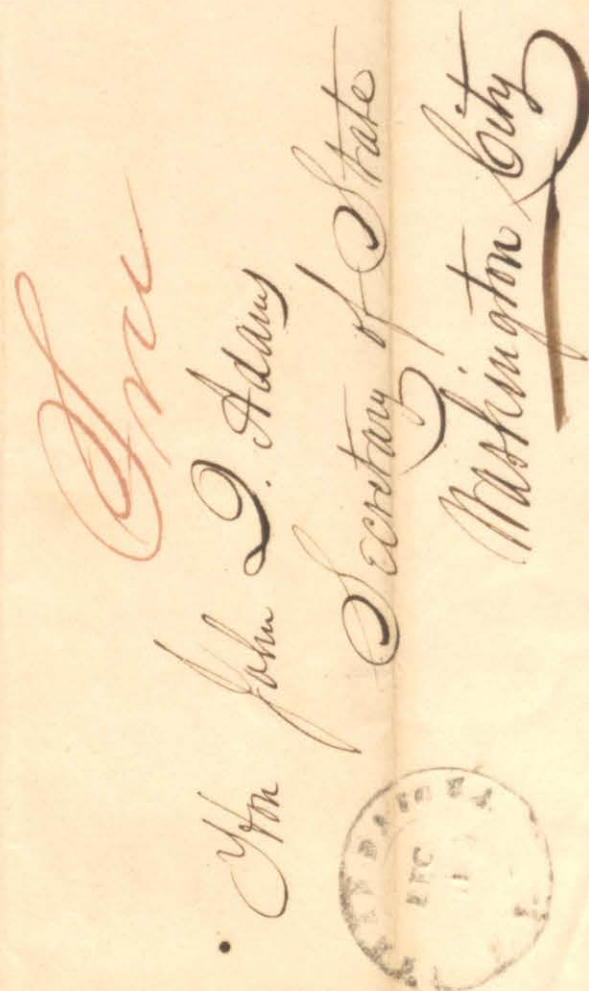 Free
Hon John Q. Adams
Secretary of State
Washington City
CANANDAIGUA
DEC